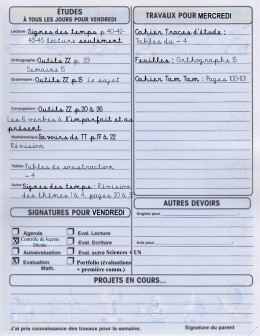 ÉTUDES
À TOUS LES JOURS POUR VENDREDI
Lecture : Signes des temps p. 40-42-
43-45 lecture seulement
Orthographe : Outils ZZ p. 39
Semaine 15
Grammaire : Outils ZZ p.15 Le sujet
Conjugaison : Outils ZZ p.20 à 26
Les 6 verbes à l'imparfait et au
présent
Mathématique : Savoirs de TT p.17 à 22
Révision
Tables : Tables de soustraction
- 4
Autre : Signes des temps : Révision
des thèmes 1 à 4, pages 20 à
SIGNATURES POUR VENDREDI
Agenda
Eval. Lecture
X Contrôle de leçons
Dictée
Eval. Ecriture
Autoévaluation
Eval. autre Sciences + US
X Evaluation
Math.
Portfolio (évaluations
+ première comm.)
TRAVAUX POUR MERCREDI
Cahier Traces d'étude :
Tables du - 4
Feuilles : Orthographe 15
Cahier Tam Tam : Pages 100-101
AUTRES DEVOIRS
Anglais pour
Arts pour
PROJETS EN COURS...
J'ai pris connaissance des travaux pour la semaine.
Signature du parent